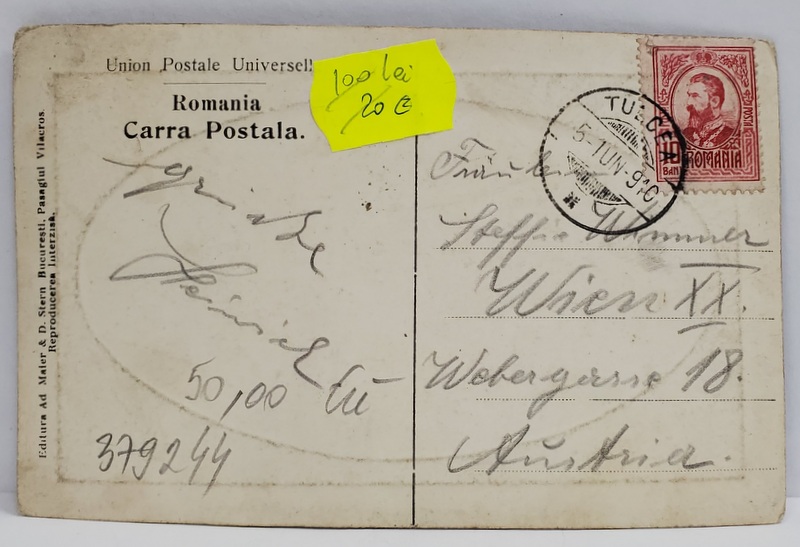 Union Postale Universell
Romania
Carra Postala.
100 lei
20 €
TULCEA
5-IUN-910
POSTA
10
BANI
ROMANIA
Editura Ad Maier & D. Stern Bucuresti, Pasagiul Vilacros
Reproducerea interzisă.
Heinrich
50,00
379244
Fräulein
Steffie Wimmer
Wien XX.
Webergasse 18.
Austria.